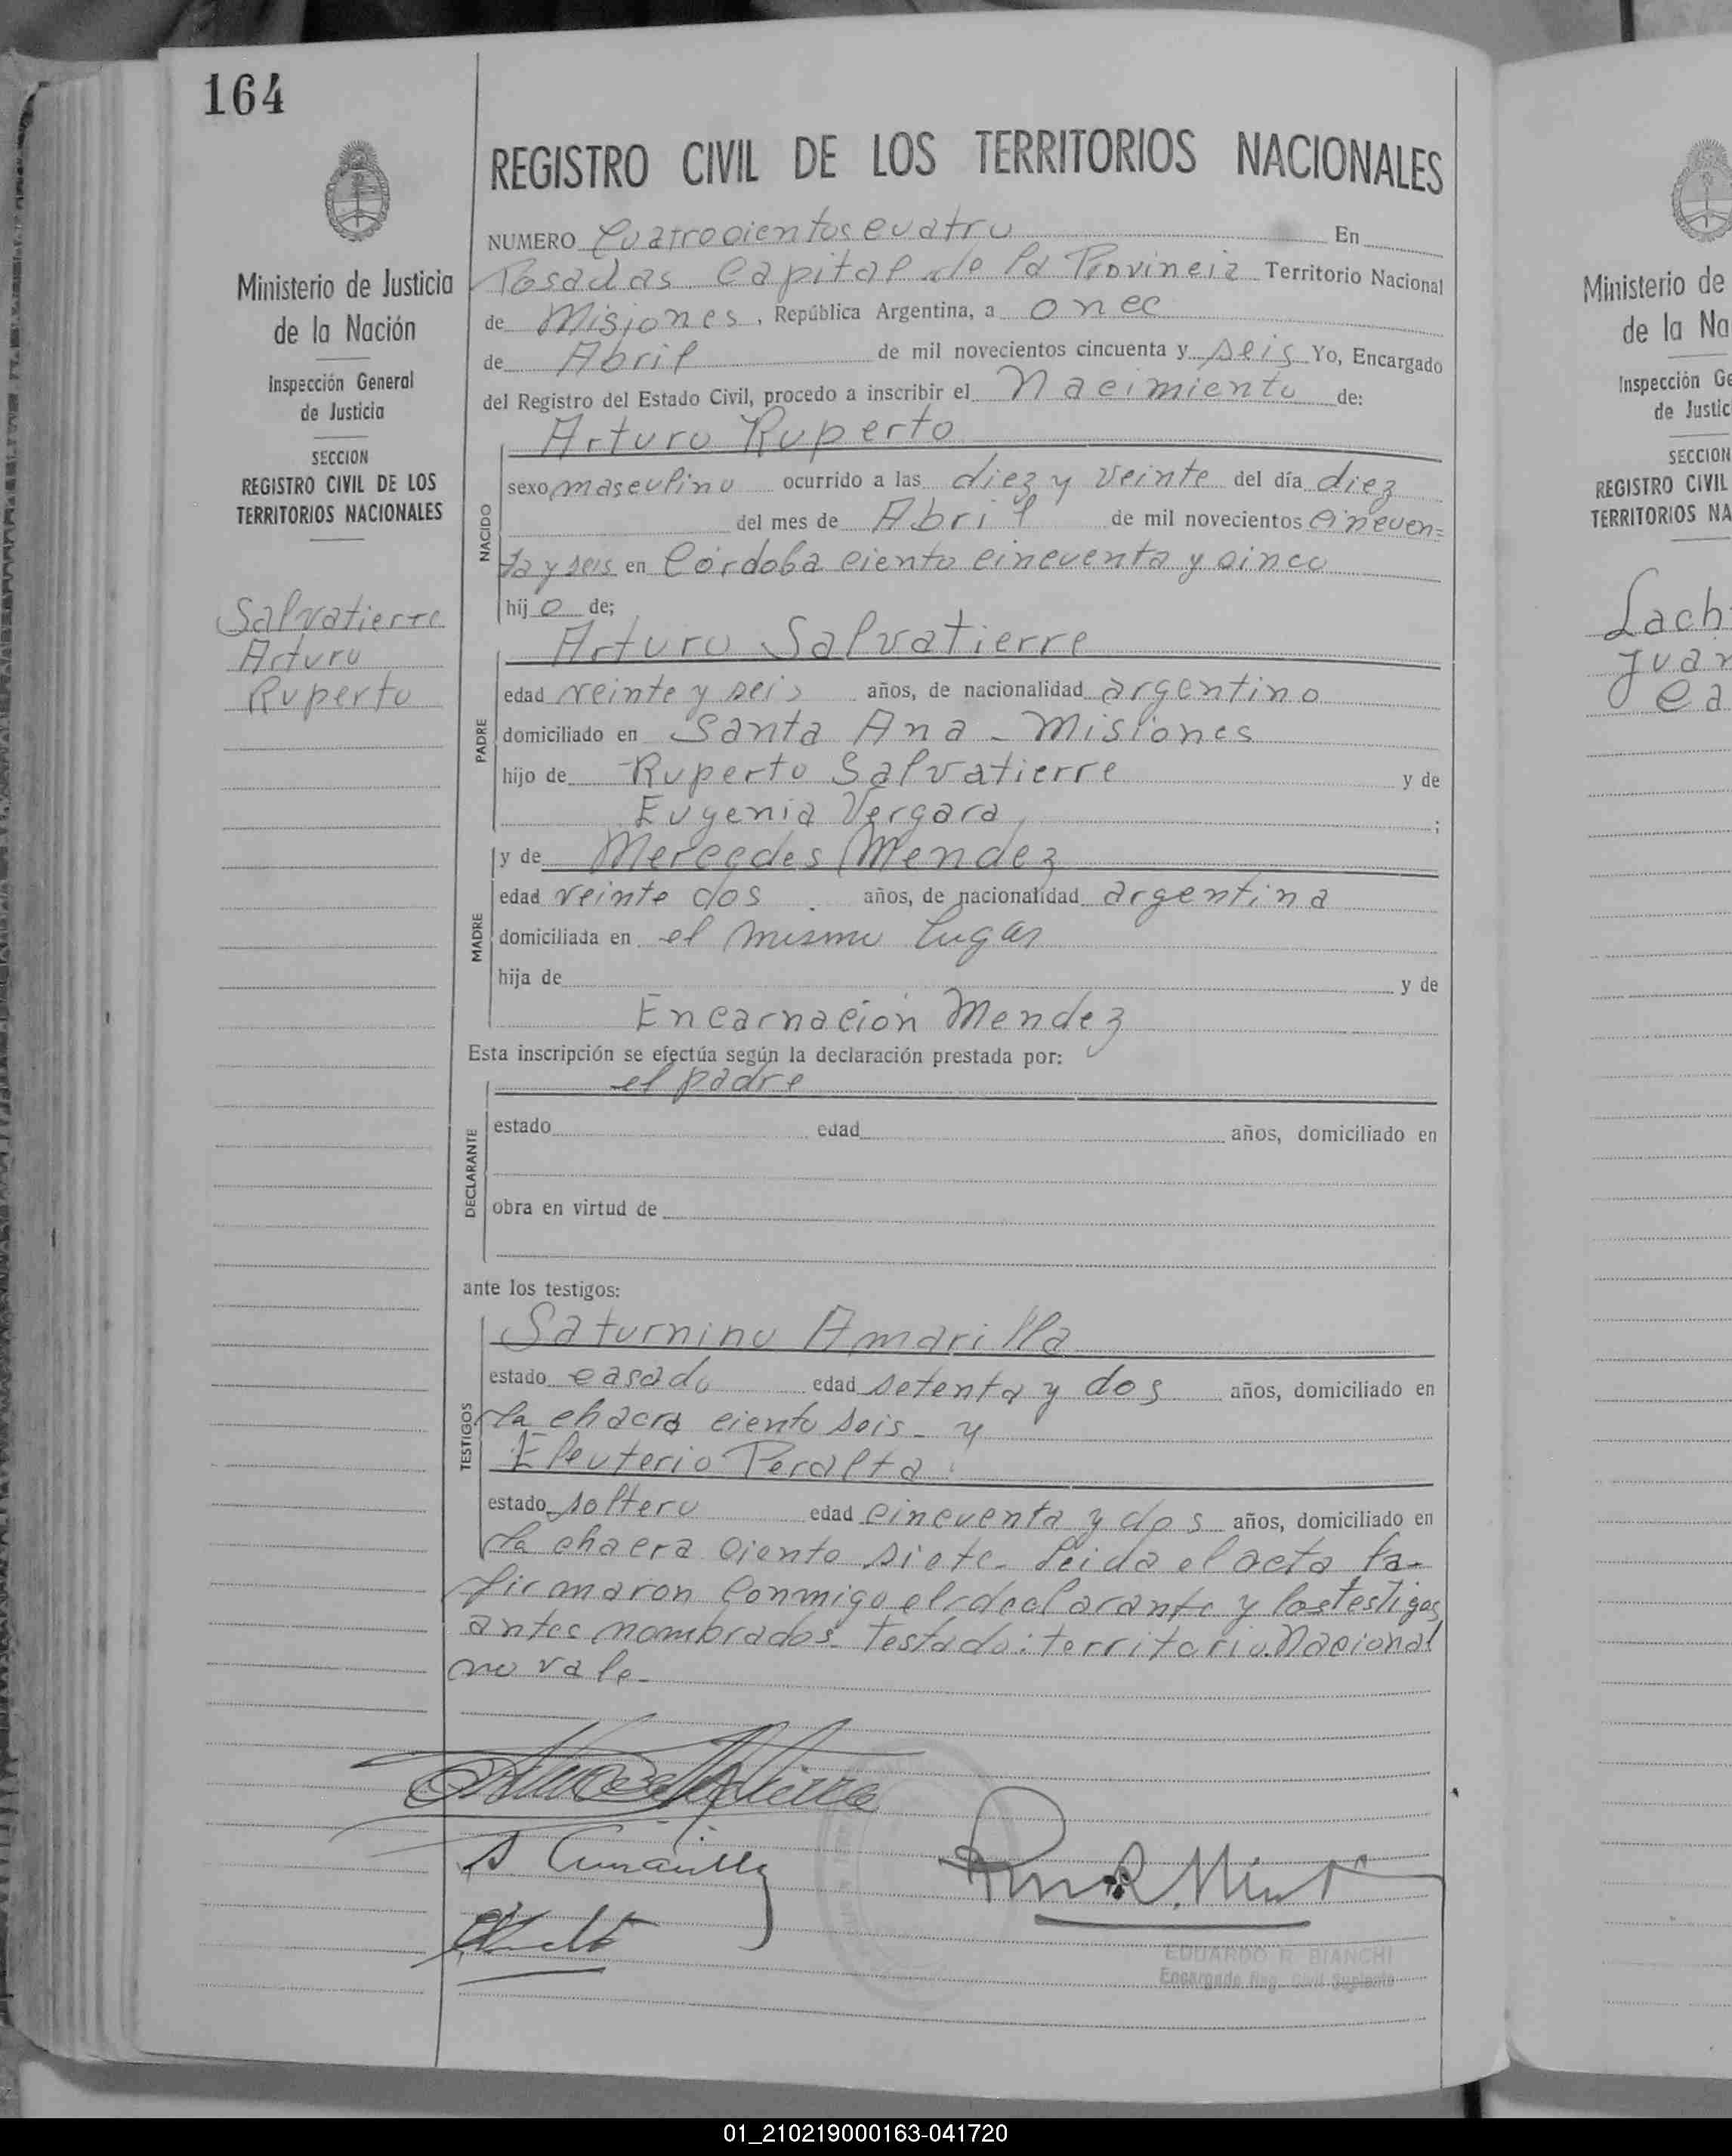 164
REGISTRO CIVIL DE LOS TERRITORIOS NACIONALES
NUMERO Cuatrocientos cuatro En
Posadas Capital de la Provincia Territorio Nacional
de Misiones, República Argentina, a once
de Abril de mil novecientos cincuenta y seis Yo, Encargado
del Registro del Estado Civil, procedo a inscribir el Nacimiento de:
Ministerio de Justicia
de la Nación
Inspección General
de Justicia
SECCION
REGISTRO CIVIL DE LOS
TERRITORIOS NACIONALES
Salvatierre
Arturo
Ruperto
NACIDO
Arturo Ruperto
sexo masculino ocurrido a las diez y veinte del día diez
del mes de Abril de mil novecientos cincuen=
ta y seis en Córdoba ciento cincuenta y cinco
hijo de;
PADRE
Arturo Salvatierre
edad veinte y seis años, de nacionalidad argentino
domiciliado en Santa Ana - Misiones
hijo de Ruperto Salvatierre y de
Eugenia Vergara;
MADRE
y de Mercedes Mendez
edad veinte dos años, de nacionalidad argentina
domiciliada en el mismo lugar
hija de y de
Encarnación Mendez
Esta inscripción se efectúa según la declaración prestada por:
DECLARANTE
el padre
estado edad años, domiciliado en
obra en virtud de
ante los testigos:
TESTIGOS
Saturnino Amarilla
estado casado edad setenta y dos años, domiciliado en
la chacra ciento seis - y
Eleuterio Peralta
estado soltero edad cincuenta y dos años, domiciliado en
la chacra ciento siete - Leida el acta la
firmaron conmigo el declarante y los testigos
antes nombrados - Testado: territorio Nacional
no vale -
EDUARDO R BIANCHI
Encargado Reg. Civil Suplente
Ministerio de
de la Na
Inspección Ge
de Justic
SECCION
REGISTRO CIVIL
TERRITORIOS NA
Lach
Juan
Ca
01_210219000163-041720